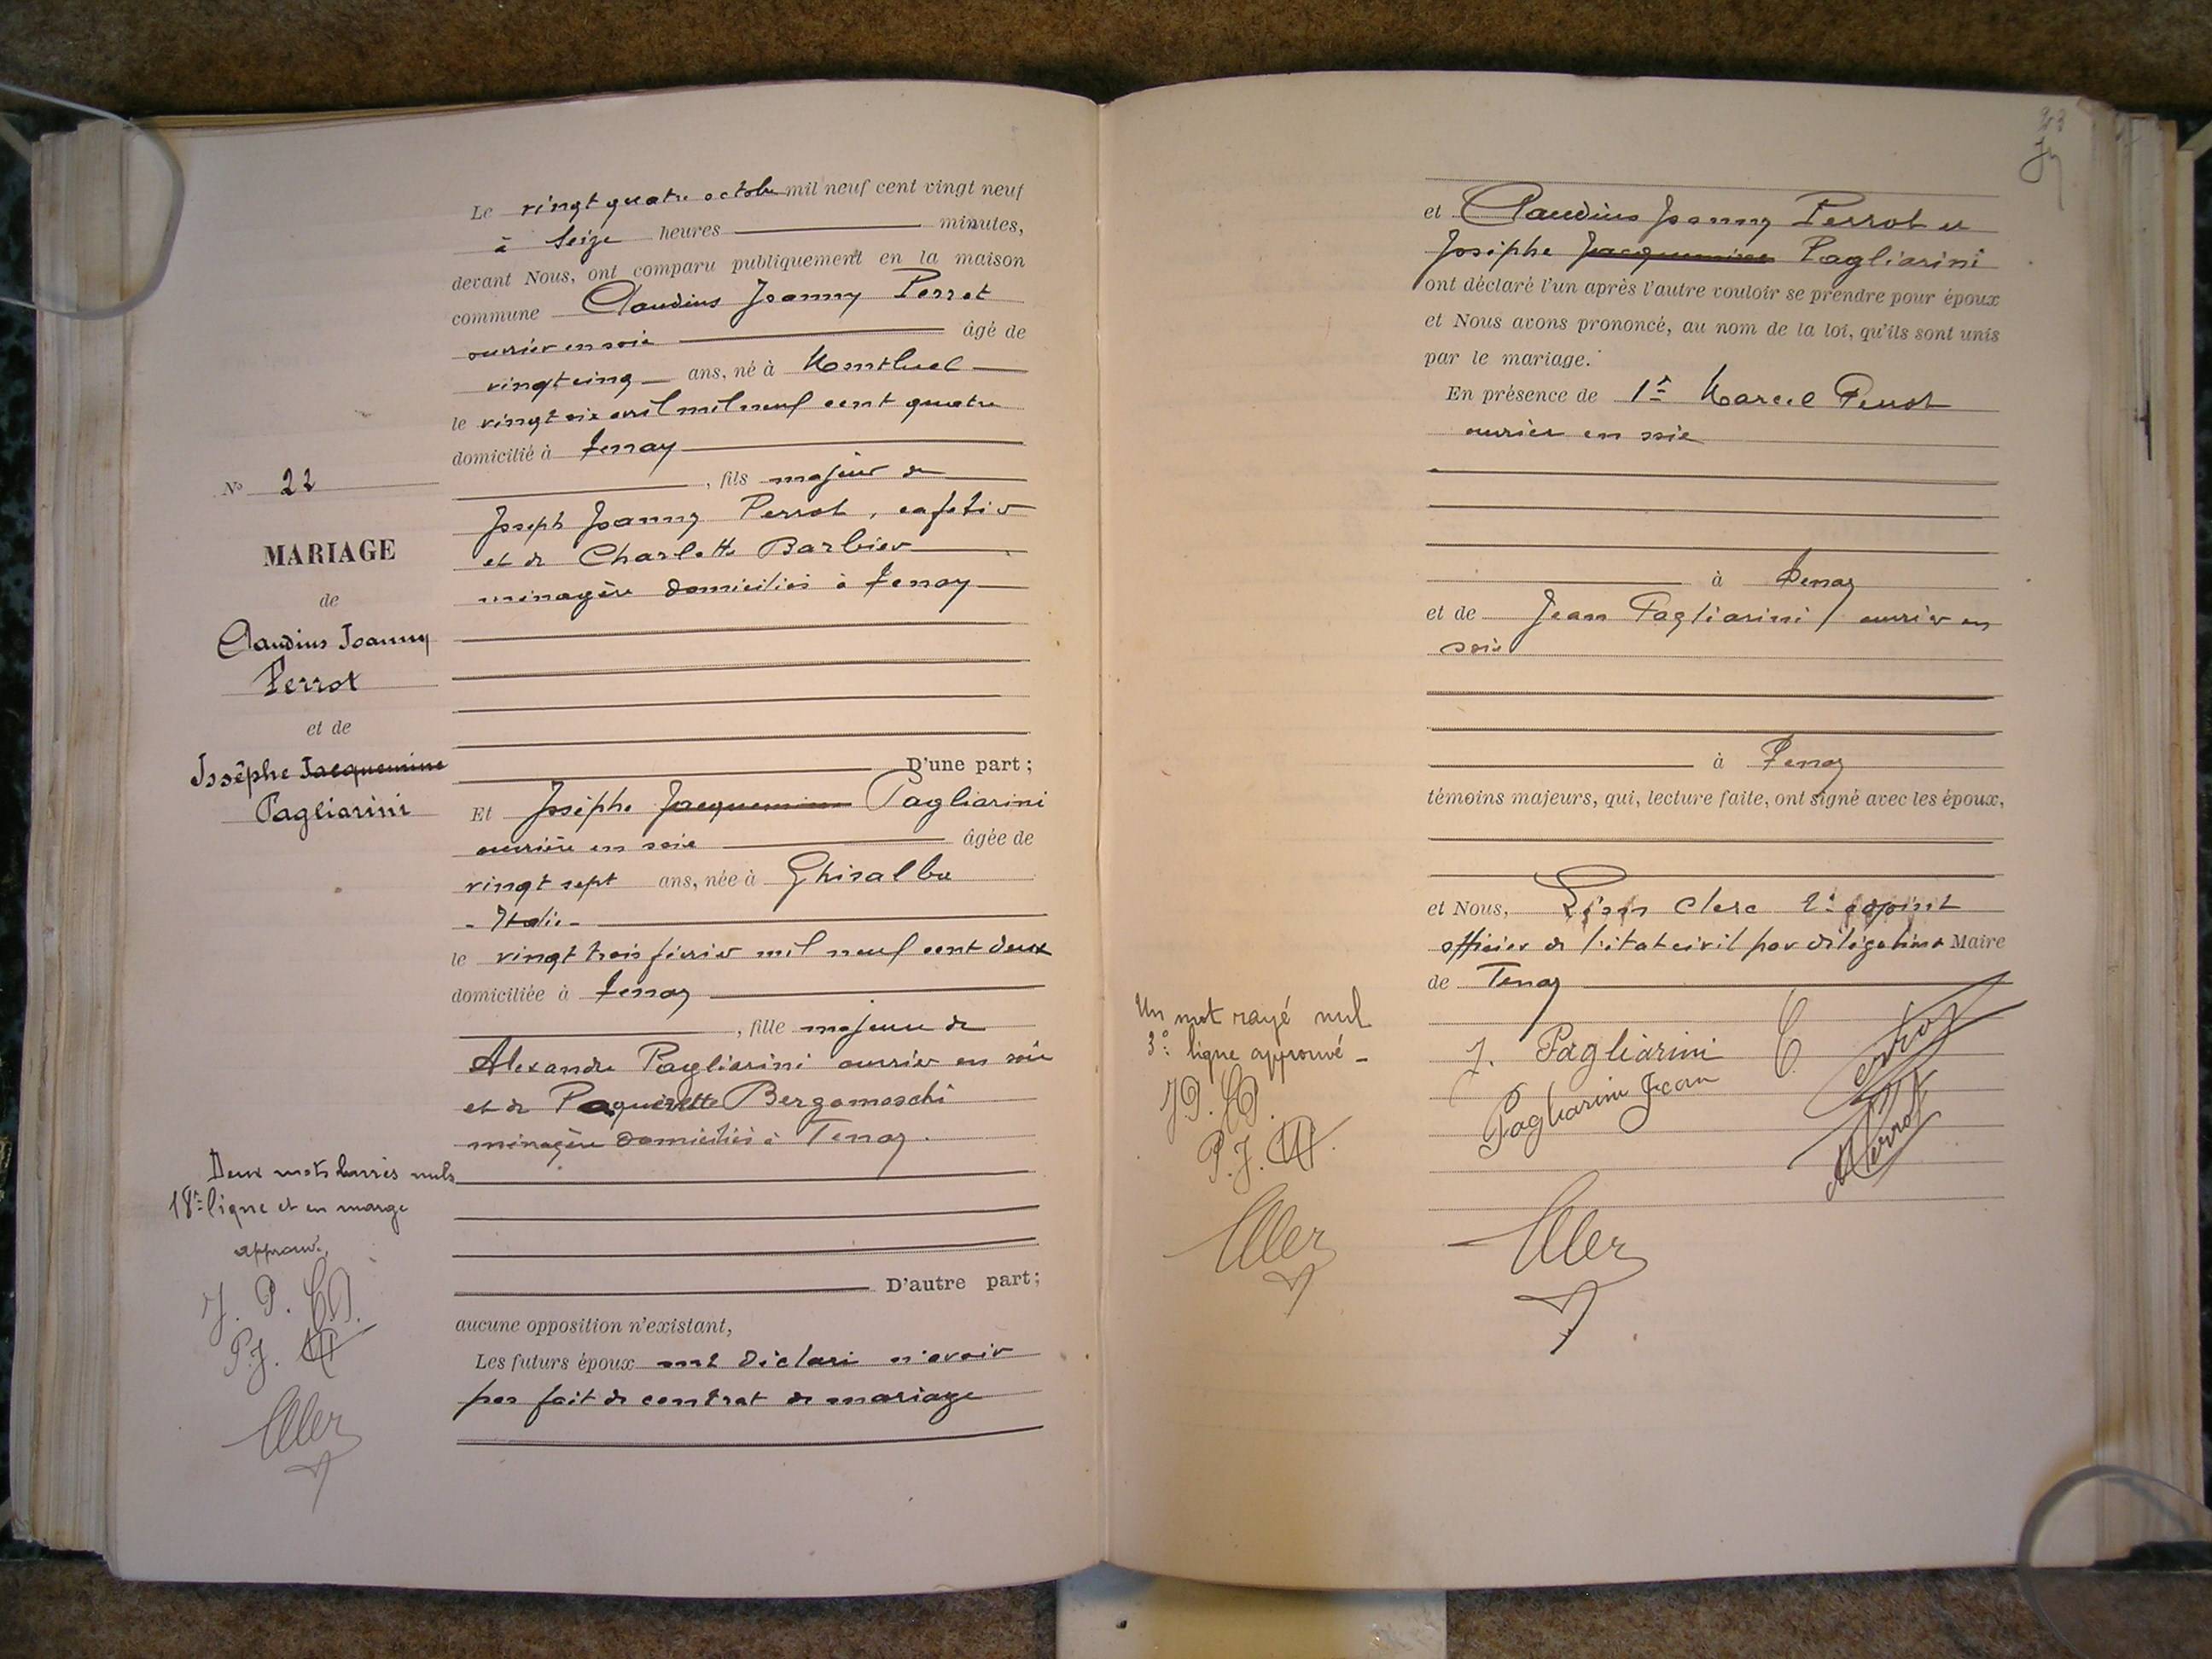 Le vingt quatre octobre mil neuf cent vingt neuf
à seize heures minutes,
devant Nous, ont comparu publiquement en la maison
commune Claudius Joanny Perrot
ouvrier en soie âgé de
vingt cinq ans, né à Montluel
le vingt six avril mil neuf cent quatre
domicilié à Tenay
, fils majeur de
Joseph Joanny Perrot, cafetier
et de Charlotte Barbier
ménagère domiciliés à Tenay
N° 22
MARIAGE
de
Claudius Joanny
Perrot
et de
Josèphe Jacquemine
Pagliarini
D'une part;
Et Josèphe Jacquemine Pagliarini
ouvrière en soie âgée de
vingt sept ans, née à Ghisalba
- Italie -
le vingt trois février mil neuf cent deux
domiciliée à Tenay
, fille majeure de
Alexandre Pagliarini ouvrier en soie
et de Paquerette Bergomeschi
ménagère domiciliés à Tenay.
Deux mots barrés nuls
18e ligne et en marge
approuvé
J. P.
P. J.
D'autre part;
aucune opposition n'existant,
Les futurs époux ont déclaré n'avoir
pas fait de contrat de mariage
et Claudius Joanny Perrot et
Josèphe Jacquemine Pagliarini
ont déclaré l'un après l'autre vouloir se prendre pour époux
et Nous avons prononcé, au nom de la loi, qu'ils sont unis
par le mariage.
En présence de 1° Marcel Perrot
ouvrier en soie
à Tenay
et de Jean Pagliarini, ouvrier en
soie
à Tenay
témoins majeurs, qui, lecture faite, ont signé avec les époux,
et Nous, Léon Clerc 2e adjoint
officier de l'état civil par délégation Maire
de Tenay
Un mot rayé nul
3e ligne approuvé -
P. J.
J. Pagliarini C
Pagliarini Jean
Perrot